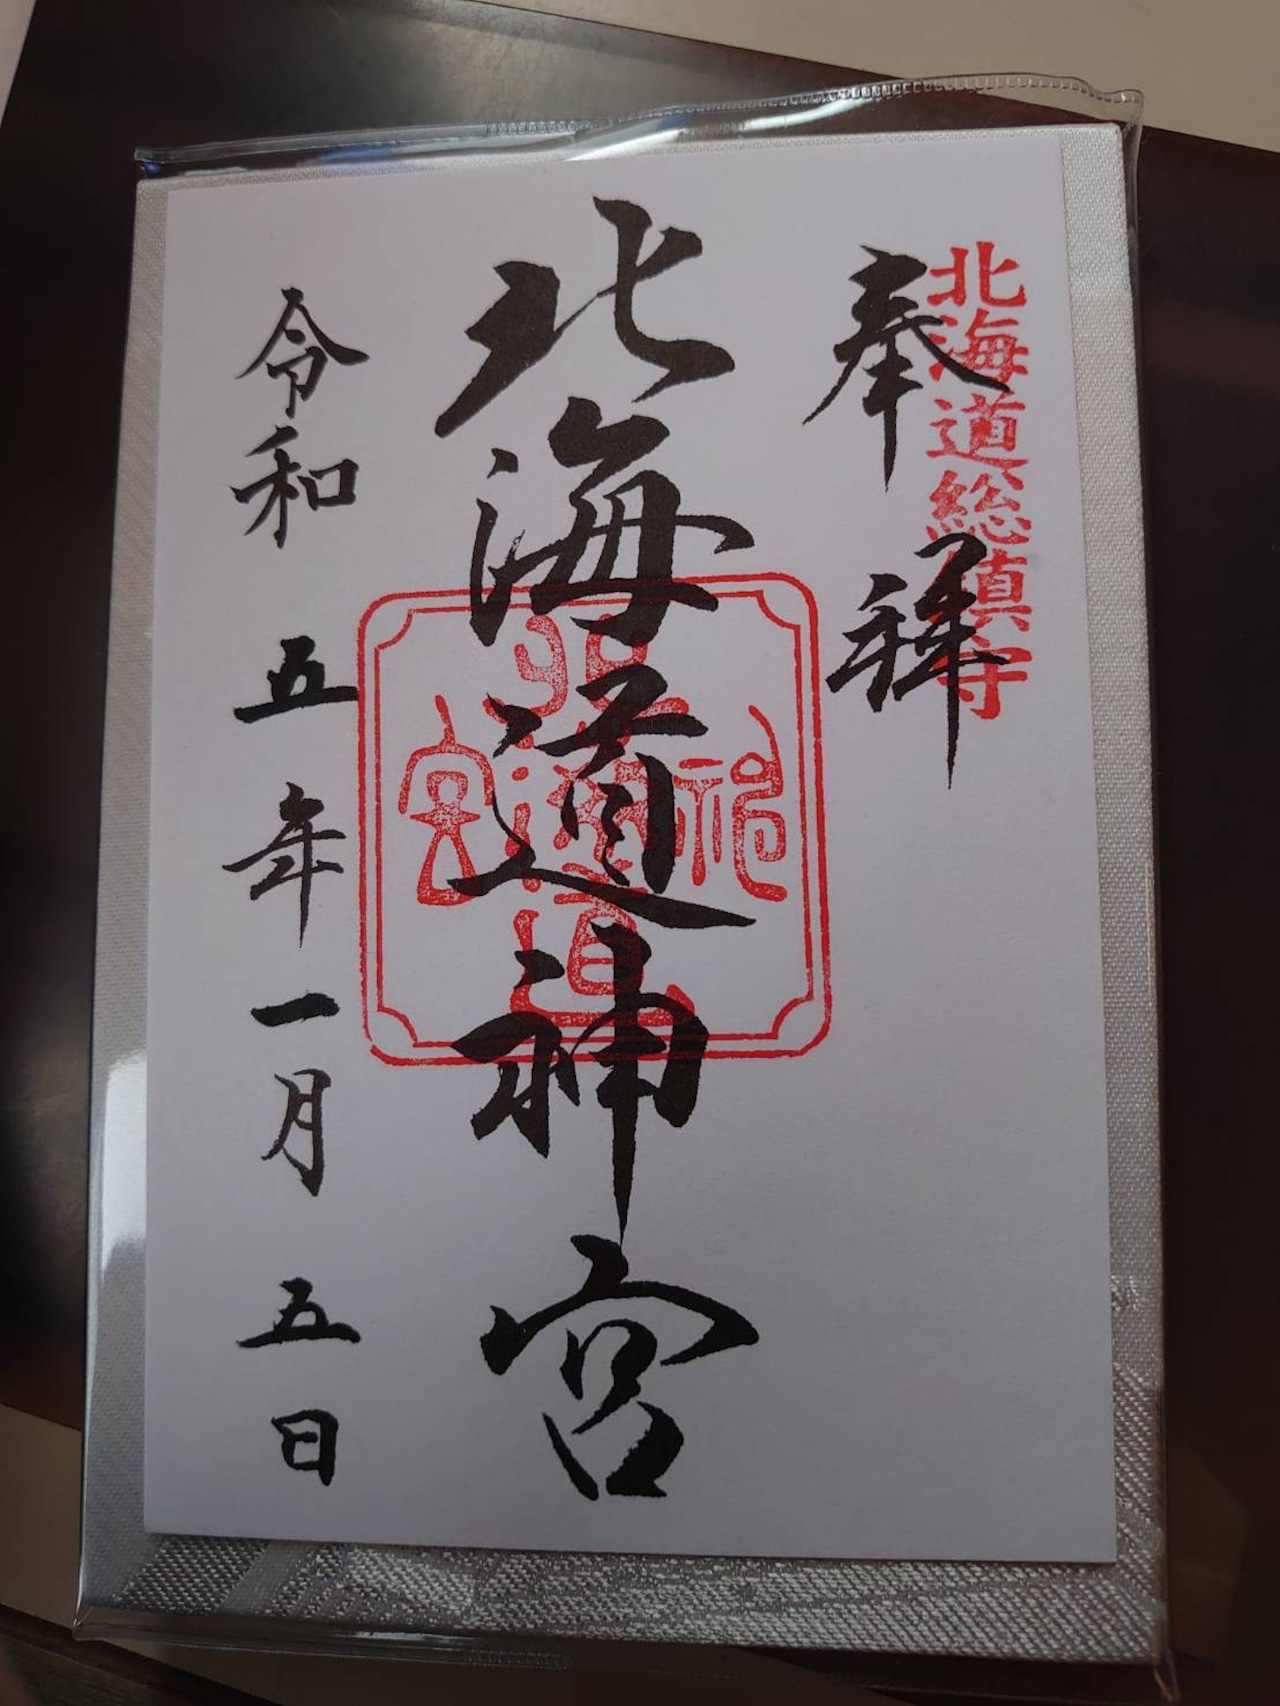 北海道総鎮守
奉拝
北海道神宮
北海道神宮
令和五年一月五日